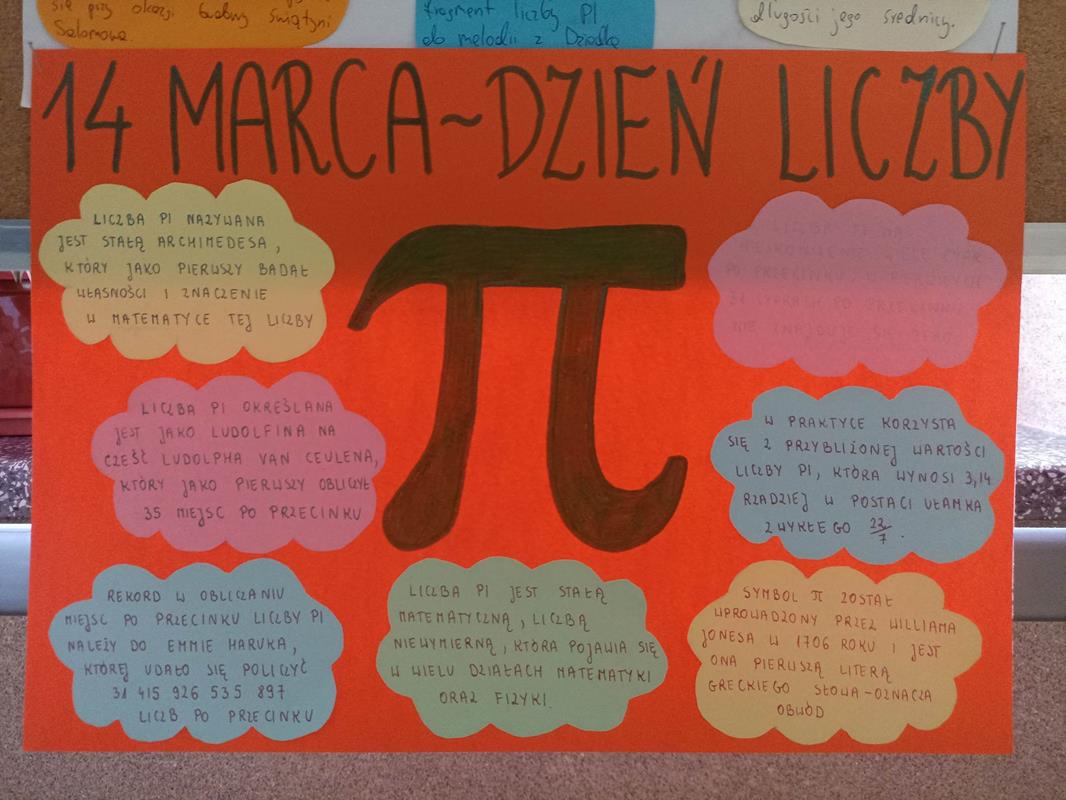 się przy okazji budowy świątyni
Salomona.
fragment liczby PI
do melodii z Dziadka
długości jego średnicy.
14 MARCA~DZIEŃ LICZBY
π
LICZBA PI NAZYWANA
JEST STAŁĄ ARCHIMEDESA,
KTÓRY JAKO PIERWSZY BADAŁ
WŁASNOŚCI I ZNACZENIE
W MATEMATYCE TEJ LICZBY
LICZBA PI MA
PO PRZECINKU
31 CYFRACH PO PRZECINKU
NIE ZNAJDUJE SIĘ ZERO
LICZBA PI OKREŚLANA
JEST JAKO LUDOLFINA NA
CZEŚĆ LUDOLPHA VAN CEULENA,
KTÓRY JAKO PIERWSZY OBLICZYŁ
35 MIEJSC PO PRZECINKU
W PRAKTYCE KORZYSTA
SIĘ Z PRZYBLIŻONEJ WARTOŚCI
LICZBY PI, KTÓRA WYNOSI 3,14
RZADZIEJ W POSTACI UŁAMKA
ZWYKŁEGO 22/7.
REKORD W OBLICZANIU
MIEJSC PO PRZECINKU LICZBY PI
NALEŻY DO EMMIE HARUKA,
KTÓREJ UDAŁO SIĘ POLICZYĆ
31 415 926 535 897
LICZB PO PRZECINKU
LICZBA PI JEST STAŁĄ
MATEMATYCZNĄ, LICZBĄ
NIEWYMIERNĄ, KTÓRA POJAWIA SIĘ
W WIELU DZIAŁACH MATEMATYKI
ORAZ FIZYKI.
SYMBOL π ZOSTAŁ
WPROWADZONY PRZEZ WILLIAMA
JONESA W 1706 ROKU I JEST
ONA PIERWSZĄ LITERĄ
GRECKIEGO SŁOWA-OZNACZA
OBWÓD